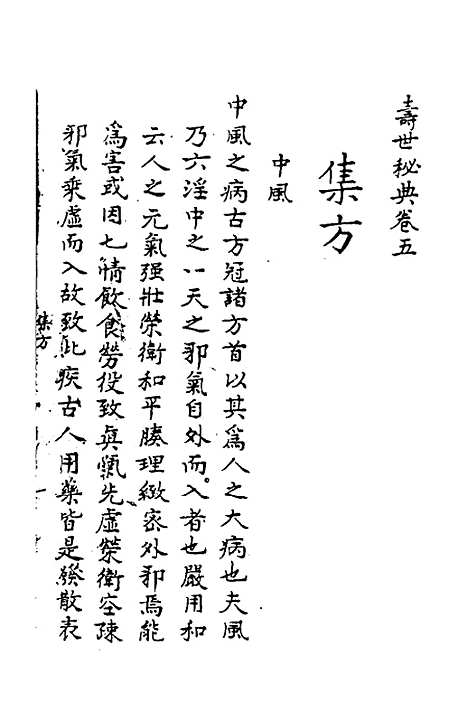 壽世秘典卷五
集方
中風
中風之病古方冠諸方首以其爲人之大病也夫風
乃六淫中之一天之邪氣自外而入者也嚴用和
云人之元氣强壯榮衛和平腠理緻密外邪焉能
爲害或因七情飲食勞役致眞氣先虛榮衛空疎
邪氣乘虛而入故致此疾古人用藥皆是發散表
集方